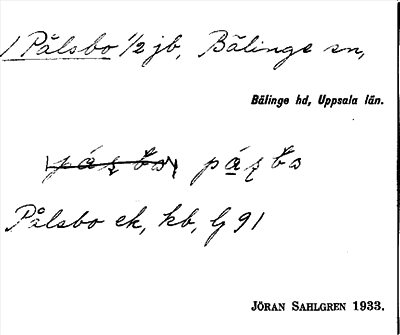 1 Pålsbo 1/2 jb, Bälinge sn,
Bälinge hd, Uppsala län.
Pålsbo ek, kb, G 91
JÖRAN SAHLGREN 1933.